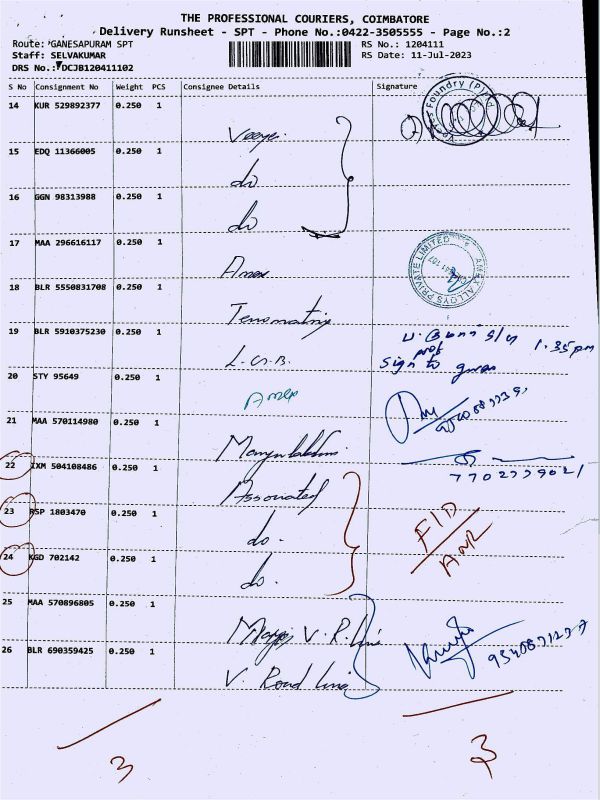 THE PROFESSIONAL COURIERS, COIMBATORE
Delivery Runsheet - SPT - Phone No.:0422-3505555 - Page No.:2
Route: GANESAPURAM SPT RS No.: 1204111
Staff: SELVAKUMAR RS Date: 11-Jul-2023
DRS No.: DCJB120411102
S No Consignment No Weight PCS Consignee Details Signature
14 KUR 529892377 0.250 1
15 EDQ 11366005 0.250 1 do
16 GGN 98313988 0.250 1 do
17 MAA 296616117 0.250 1 Amex
AMEX ALLOYS PRIVATE LIMITED
18 BLR 5550831708 0.250 1
19 BLR 5910375230 0.250 1 L.G.B. 1.35pm
sign to
20 STY 95649 0.250 1 Amex
21 MAA 570114980 0.250 1
22 IXM 504108486 0.250 1 Associated 7702779021
23 RSP 1803470 0.250 1 do.
24 KGD 702142 0.250 1 do.
25 MAA 570896805 0.250 1 V. R. Line
26 BLR 690359425 0.250 1 V. Road Line
3 3